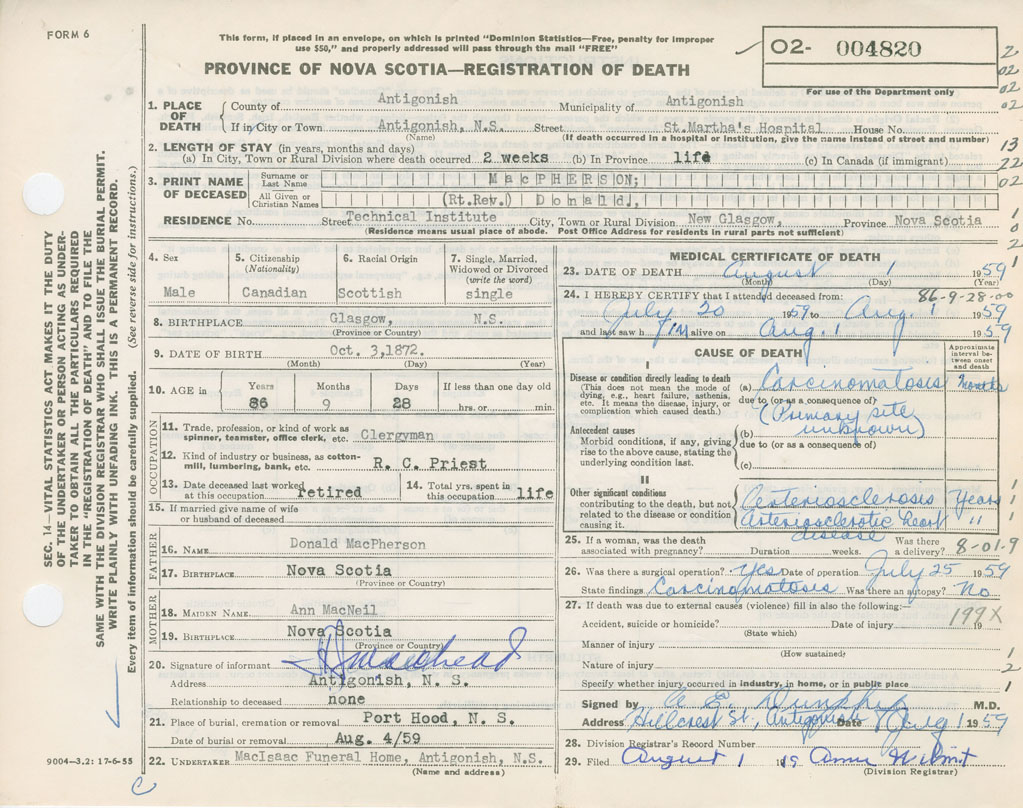 FORM 6
This form, if placed in an envelope, on which is printed "Dominion Statistics—Free, penalty for improper
use $50," and properly addressed will pass through the mail "FREE"
O2- 004820
For use of the Department only
PROVINCE OF NOVA SCOTIA—REGISTRATION OF DEATH
2
02
02
02
13
22
02
1
0
2
1
SEC. 14—VITAL STATISTICS ACT MAKES IT THE DUTY
OF THE UNDERTAKER OR PERSON ACTING AS UNDER-
TAKER TO OBTAIN ALL THE PARTICULARS REQUIRED
IN THE "REGISTRATION OF DEATH" AND TO FILE THE
SAME WITH THE DIVISION REGISTRAR WHO SHALL ISSUE THE BURIAL PERMIT.
WRITE PLAINLY WITH UNFADING INK. THIS IS A PERMANENT RECORD.
Every item of information should be carefully supplied. (See reverse side for instructions.)
1. PLACE OF DEATH County of Antigonish Municipality of Antigonish
If in City or Town Antigonish, N.S. Street St.Martha's Hospital House No.
(Name) (If death occurred in a hospital or institution, give the name instead of street and number)
2. LENGTH OF STAY (in years, months and days)
(a) In City, Town or Rural Division where death occurred 2 weeks (b) In Province life (c) In Canada (if immigrant)
3. PRINT NAME OF DECEASED Surname or Last Name MacPHERSON;
All Given or Christian Names (Rt.Rev.) Donald,
RESIDENCE No. Street Technical Institute City, Town or Rural Division New Glasgow, Province Nova Scotia
(Residence means usual place of abode. Post Office Address for residents in rural parts not sufficient)
4. Sex Male
5. Citizenship (Nationality) Canadian
6. Racial Origin Scottish
7. Single, Married, Widowed or Divorced (write the word) single
8. BIRTHPLACE Glasgow, N.S.
(Province or Country)
9. DATE OF BIRTH Oct. 3,1872.
(Month) (Day) (Year)
10. AGE in Years Months Days If less than one day old
86 9 28 hrs. or min.
OCCUPATION
11. Trade, profession, or kind of work as
spinner, teamster, office clerk, etc. Clergyman
12. Kind of industry or business, as cotton-
mill, lumbering, bank, etc. R. C. Priest
13. Date deceased last worked at this occupation retired
14. Total yrs. spent in this occupation life
15. If married give name of wife
or husband of deceased
FATHER
16. NAME Donald MacPherson
17. BIRTHPLACE Nova Scotia
(Province or Country)
MOTHER
18. MAIDEN NAME Ann MacNeil
19. BIRTHPLACE Nova Scotia
(Province or Country)
20. Signature of informant
Address Antigonish, N. S.
Relationship to deceased none
21. Place of burial, cremation or removal Port Hood, N. S.
Date of burial or removal Aug. 4/59
22. UNDERTAKER MacIsaac Funeral Home, Antigonish, N.S.
(Name and address)
9004—3.2: 17-6-55
C
MEDICAL CERTIFICATE OF DEATH
23. DATE OF DEATH August 1 1959
(Month) (Day) (Year)
86-9-28-00
24. I HEREBY CERTIFY that I attended deceased from:
July 20 1959 to Aug. 1 1959
and last saw him alive on Aug. 1 1959
CAUSE OF DEATH
Approximate interval be-tween onset and death
I
Disease or condition directly leading to death
(This does not mean the mode of dying, e.g., heart failure, asthenia, etc. It means the disease, injury, or complication which caused death.)
(a) Carcinomatosis months
due to (or as a consequence of)
(Primary site
unknown)
Antecedent causes
Morbid conditions, if any, giving rise to the above cause, stating the underlying condition last.
(b)
due to (or as a consequence of)
(c)
II
Other significant conditions
contributing to the death, but not related to the disease or condition causing it.
Arteriosclerosis Years 1
Arteriosclerotic heart " 1
disease
25. If a woman, was the death associated with pregnancy? Duration weeks. Was there a delivery? 8-01.9
26. Was there a surgical operation? Yes Date of operation July 25 1959
State findings Carcinomatosis Was there an autopsy? No
27. If death was due to external causes (violence) fill in also the following:—
199X
Accident, suicide or homicide? Date of injury 19
(State which)
Manner of injury
(How sustained)
1
Nature of injury 2
Specify whether injury occurred in industry, in home, or in public place 1
Signed by M.D.
Address Hillcrest St., Antigonish Date Aug 1 1959
28. Division Registrar's Record Number
29. Filed August 1 19
(Division Registrar)